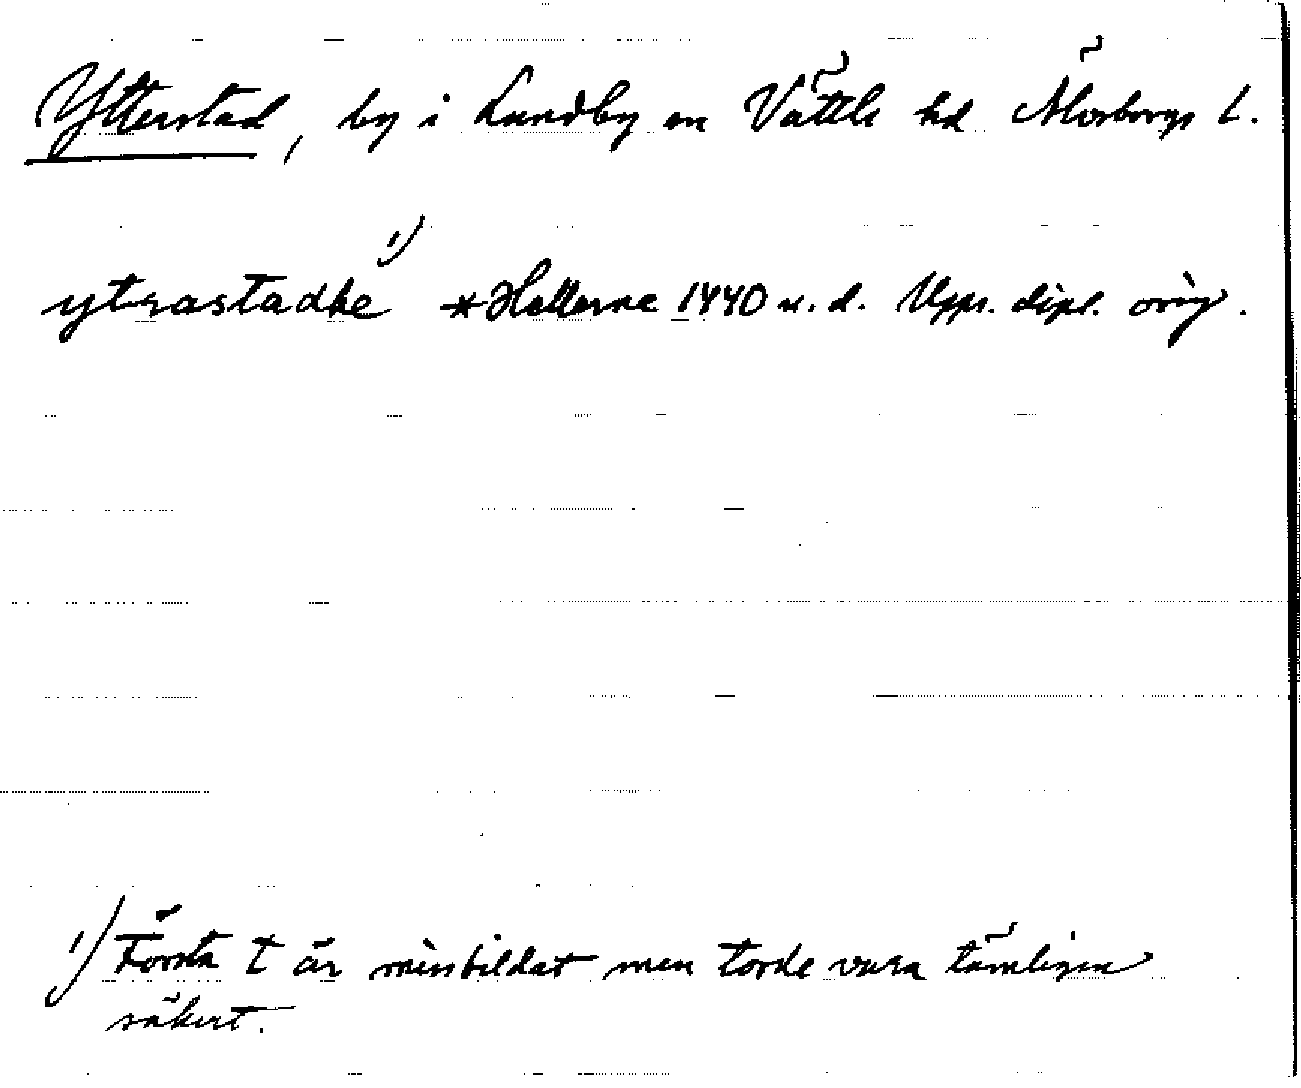 Ytterstad, by i Lundby sn Vättle hd Älvsborgs l.
ytrastadhe 1) *Hellerne 1440 u. d. Upps. dipl. orig.
1) Första t är missbildat men torde vara tämligen
säkert.